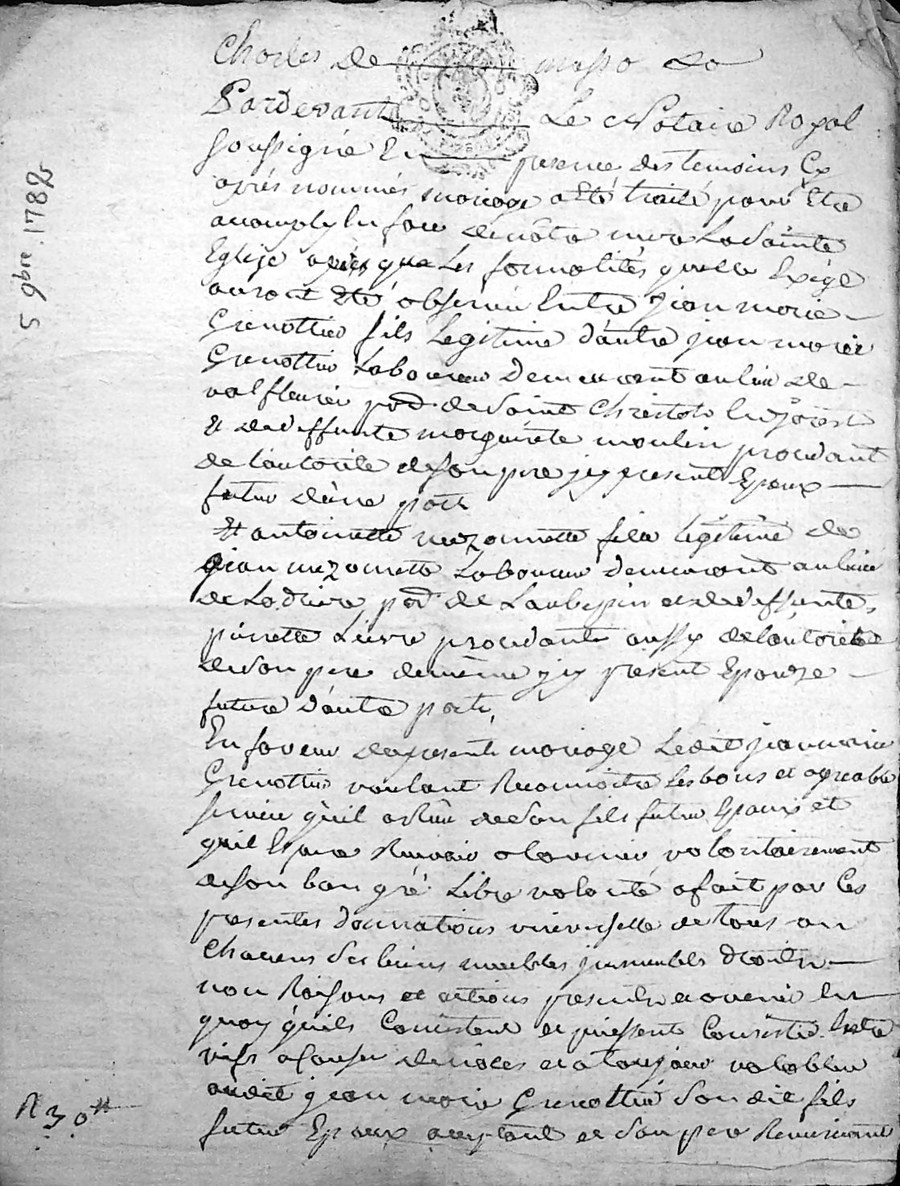 Charles de masso de
Pardevant Le Notaire Royal
soussigné En presence des temoins Cy
après nommés mariage a Eté traité pour Etre
accomply En face de nôtre mere La Sainte
Eglize après que Les formalités quelle Exige
auront Eté observées Entre jean marie
Grenottier fils Legitime d'autre jean marie
Grenottier Laboureur Demeurant au lieu de
valfleurie psse de Saint Christoto En jarest
Et de deffunte marguerite moulin procedant
de l'autorité de son pere jcy present Epoux
futur d'une part
Et antoinette mezonnette fille légitime de
jean mezonnette Laboureur demeurant au lieu
de psse de Laubepin et de deffunte
pierrette Lievre procedante aussy de l'autorité
de son pere de même jcy present Epouze
future d'autre part,
En faveur de present mariage Ledit jean marie
Grenottier voulant Reconnoitre Les bons et agreable
service qu'il a Reçu de son fils futur Epoux et
qu'il Espere Recevoir a l'avenir volontairement
de son bon gré Libre volonté a fait par Ces
presentes donnations universelle de tous un
Chacuns Ses biens meubles jmmeubles droits
nom Raisons et actions presents et avenir En
quoy qu'ils Consistent et puissent Consister Entre
vifs a cause de nôces et a toujour valable
audit jean marie Grenottié Son dit fils
futur Epoux acceptant et Son pere Remerciant
5 9bre. 1782
R 30 tt